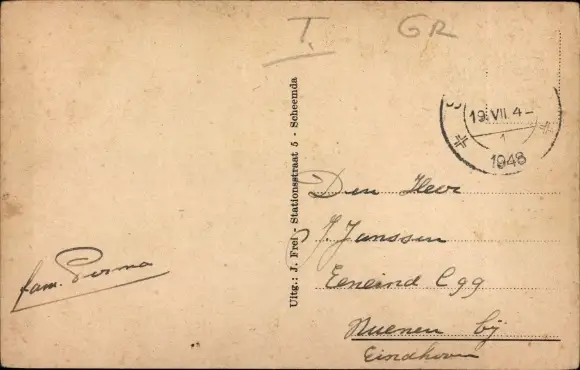 T.
GR
19.VII.4-
1
1948
Uitg.: J. Frel - Stationsstraat 5 - Scheemda
Den Heer
J. Janssen
Eeneind C 99
Nuenen bij
Eindhoven
fam.